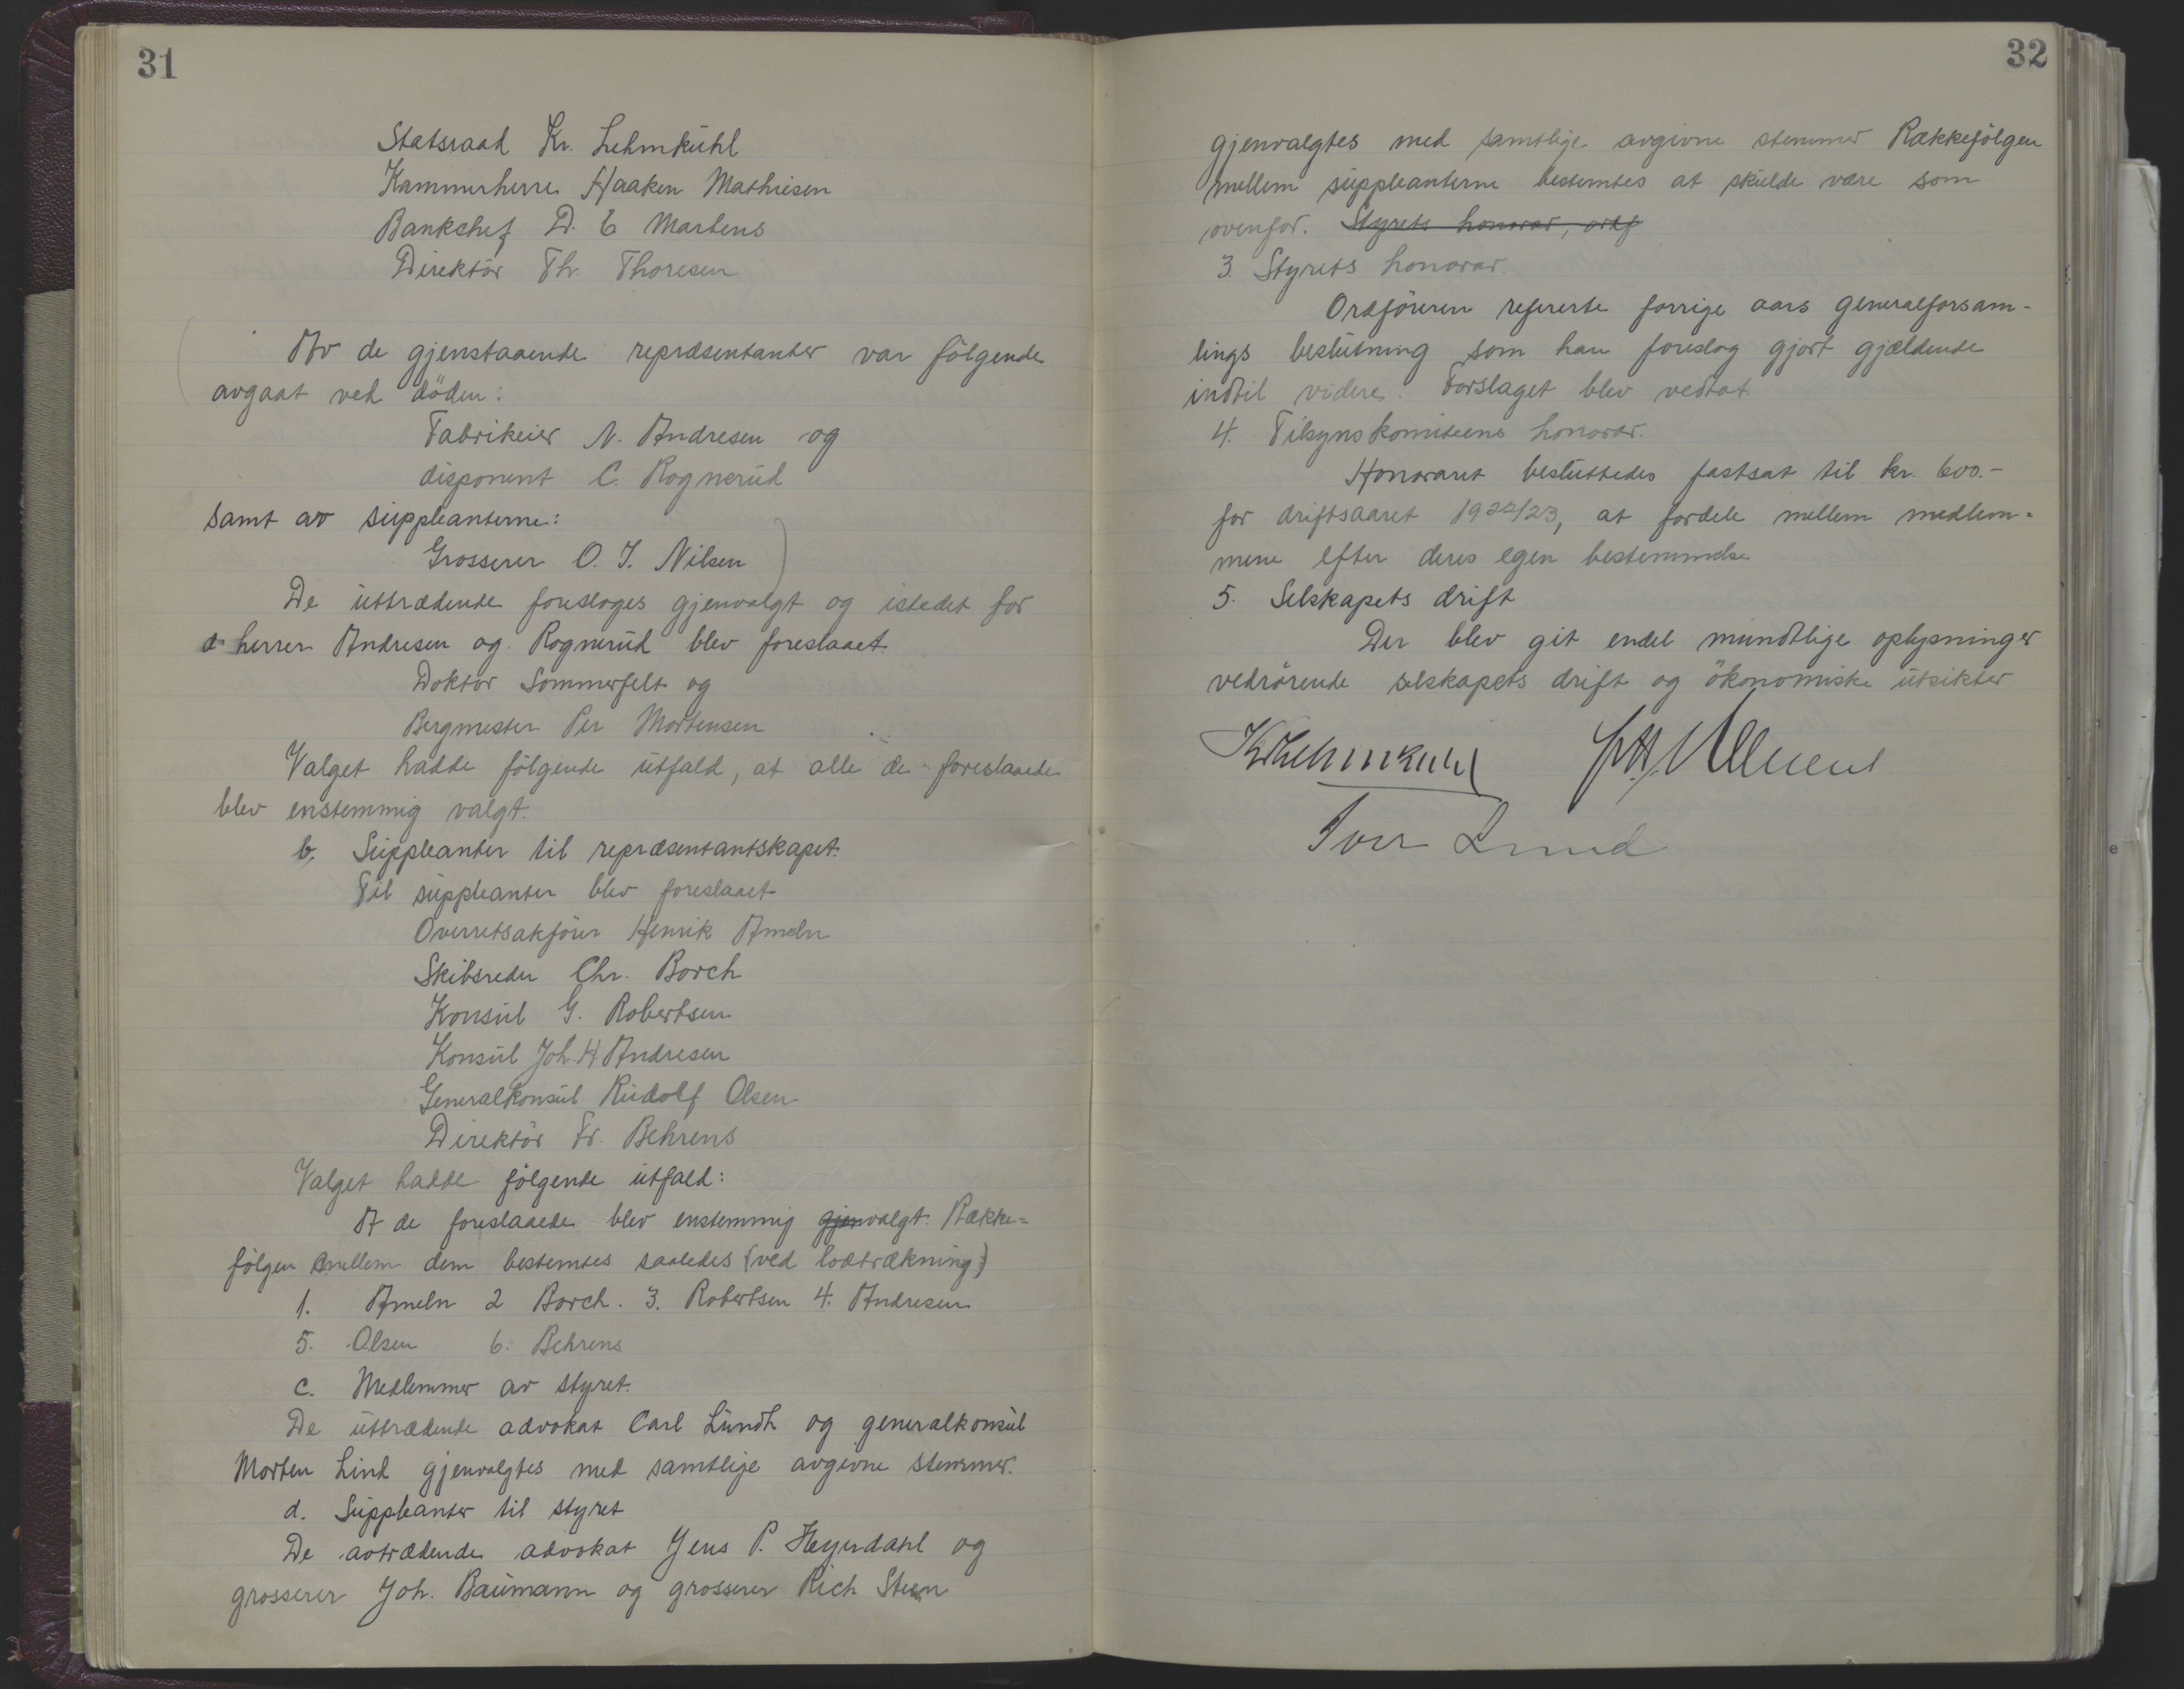 31
Statsraad Kr. Lehmkuhl
Kammerherre Haaken Mathiesen
Bankchef D. C Martens
Direktör Th. Thoresen
Av de gjenstaaende repræsentanter var fölgende
avgaat ved döden:
Fabrikeier N. Andresen og
disponent C. Rognerud
samt av suppleanterne:
Grosserer O. J. Nilsen
De uttrædende foresloges gjenvalgt og istedet for
d herrer Andresen og Rognerud blev foreslaaet
Doktor Sommerfelt og
Bergmester Per Mortensen
Valget hadde fölgende utfald, at alle de foreslaaede
blev enstemmig valgt.
b. Suppleanter til repræsentantskapet.
Til suppleanter blev foreslaaet
Overretsakförer Henrik Ameln
Skibsreder Chr. Borch
Konsul G. Robertsen
Konsul Joh. H Andresen
Generalkonsul Rudolf Olsen
Direktör Fr. Behrens
Valget hadde fölgende utfald:
A de foreslaaede blev enstemmig gjenvalgt. Række-
fölgen mellem dem bestemtes saaledes (ved lodtrækning)
1. Ameln 2 Borch. 3. Robertsen 4. Andresen
5. Olsen 6. Behrens
c. Medlemmer av styret.
De uttrædende advokat Carl Lundh og generalkonsul
Morten Lind gjenvalgtes med samtlige avgivne stemmer.
d. Suppleanter til styret
De avtrædende advokat Jens P. Heyerdahl og
grosserer Joh. Baumann og grosserer Rich Steen
32
gjenvalgtes med samtlige avgivne stemmer. Rækkefölgen
mellem suppleanterne bestemtes at skulde være som
ovenfor. Styrets honorar, ordf
3. Styrets honorar.
Ordföreren refererte forrige aars generalforsam-
lings beslutning som han foreslog gjort gjældende
indtil videre. Forslaget blev vedtat.
4. Tilsynskomiteens honorar.
Honoraret besluttedes fastsat til kr. 600.-
for driftsaaret 1922/23, at fordele mellem medlem-
mene efter deres egen bestemmelse
5. Selskapets drift
Der blev git endel mundtlige oplysninger
vedrörende selskapets drift og ökonomiske utsikter
KrLehmkuhl
Iver Lund